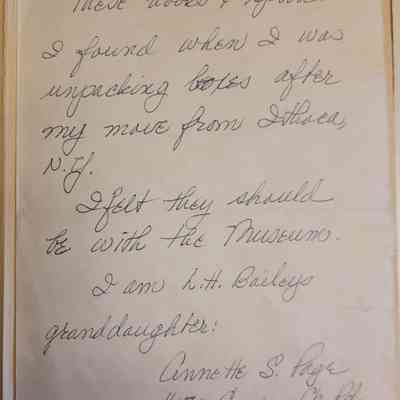 These books &
I found when I was
unpacking boxes after
my move from Ithaca,
N.Y.
I felt they should
be with the Museum.
I am L.H. Baileys
granddaughter:
Annette S. Page
Rd.